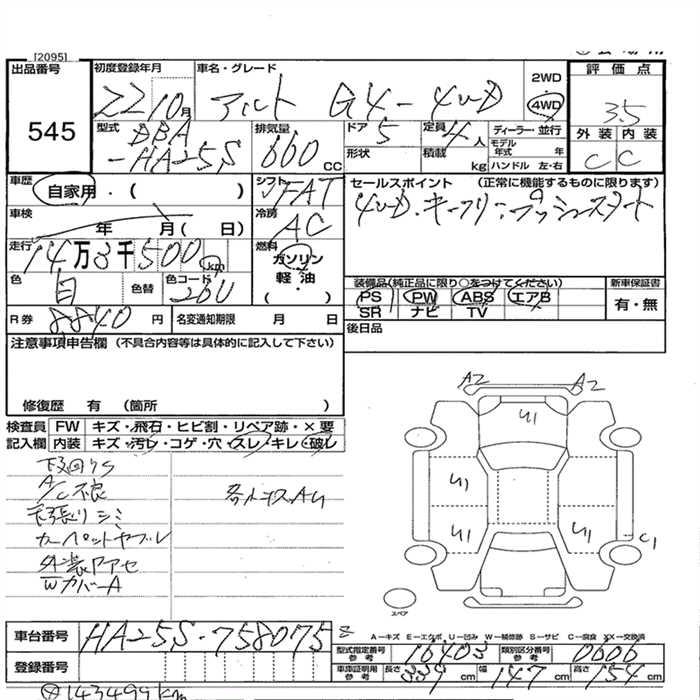 [2095]
出品番号 545
初度登録年月 22 10月
車名・グレード アルト G4-4WD
2WD
4WD
評価点 3.5
外装 内装
C C
型式 DBA-HA25S
排気量 660 CC
ドア 5
形状
定員 4人
積載 kg
ディーラー・並行
モデル年式 年
ハンドル 左・右
車歴 自家用・( )
シフト FAT
セールスポイント (正常に機能するものに限ります)
4WD.キーフリ.プッシュスタート
車検 年 月( 日)
冷房 AC
走行 14万3千500 km
燃料 ガソリン 軽油 ・( )
色 白 色替 色コード 26U
装備品(純正品に限り○をつけてください)
PS PW ABS エアB
SR ナビ TV
新車保証書
有・無
R券 8840円 名変通知期限 月 日
後日品
注意事項申告欄 (不具合内容等は具体的に記入して下さい)
修復歴 有 (箇所 )
検査員記入欄
FW キズ・飛石・ヒビ割・リペア跡・×要
内装 キズ・汚レ・コゲ・穴・スレ・キレ・破レ
下回りS
A/C不良
天張りシミ
カーペットヤブレ
外装色アセ
Wカバー A
A2 A2
U1
U1
U1 U1
C1
スペア
A-キズ E-エクボ U-凹み W-補修跡 S-サビ C-腐食 XX-交換済
車台番号 HA25S-758075
登録番号
型式指定番号 参考 16403
類別区分番号 参考 0606
車庫証明用 参考 長さ 339 cm 幅 147 cm 高さ 154 cm
143499km